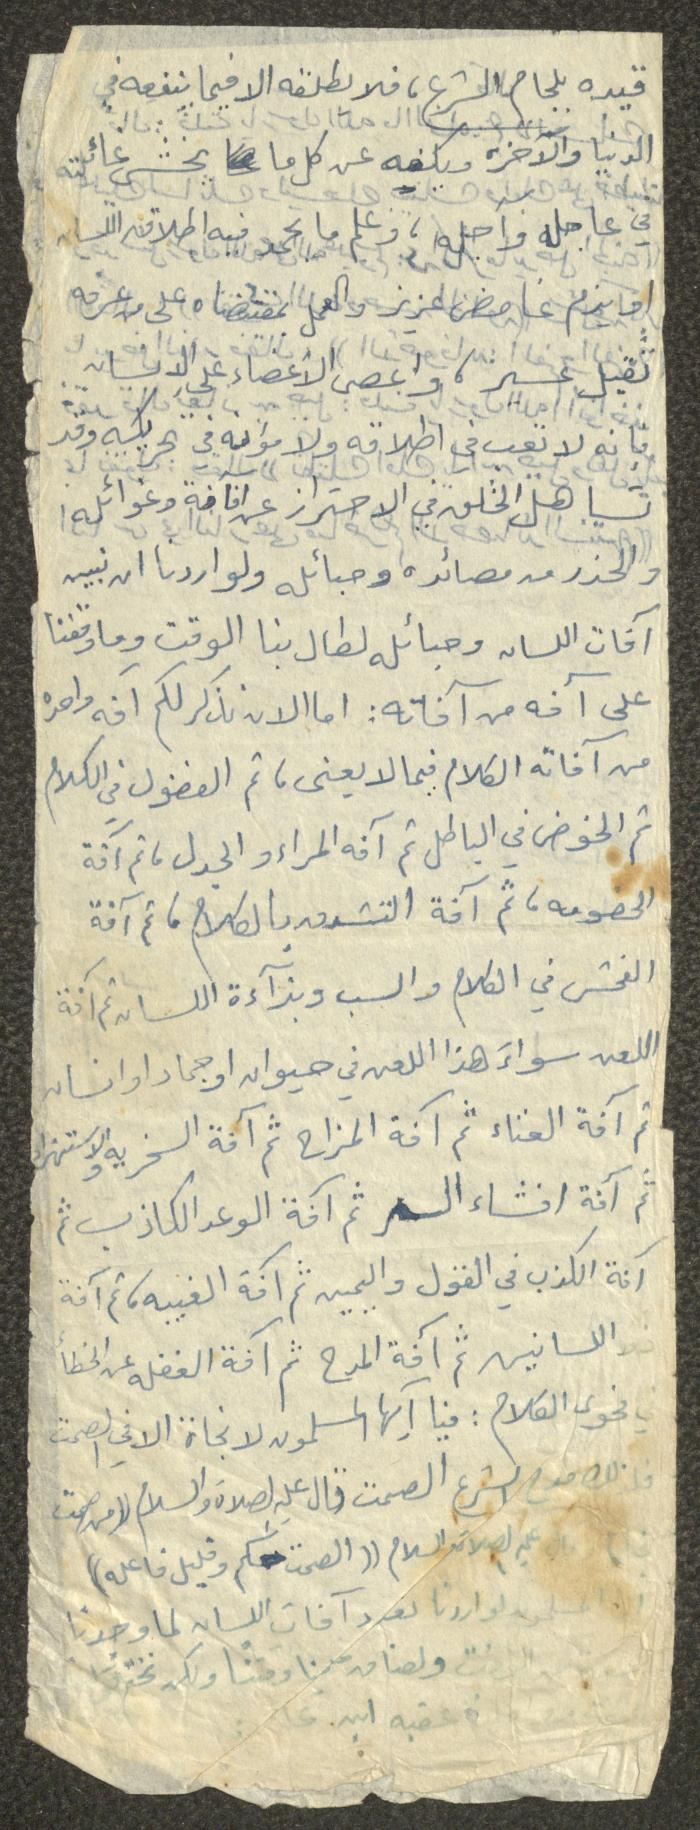 قيده بلجام الشرع، فلا يطلقه الا فيما ينفعه في
الدنيا والآخره ويكفه عن كل ما يخشى غائلته
في عاجله وآجله، وعلم ما يحمد فيه اطلاق اللسان
او يذم غامض عزيز والعمل بمقتضاه على من عرفه
ثقيل عسير، واعصى الأعضاء على الانسان
فأنه لا تعب في اطلاقه ولا مؤنه في تحريكه وقد
تساهل الخلق في الاحتراز عن افاته وغوائله
والحذر من مصائده وحبائله ولو اردنا ان نبين
آفات اللسان وحبائله لطال بنا الوقت وما وقفنا
على آفه من آفاته: اما الان نذكر لكم آفه واحده
من آفاته الكلام فيما لا يعنى، ثم الفضول في الكلام
ثم الخوض في الباطل ثم آفه المراء والجدل، ثم آفة
الخصومه، ثم آفة التشدق بالكلام، ثم آفة
الفحش في الكلام والسب وبذآءة اللسان ثم آفة
اللعن سواء هذا اللعن في حيوان او جماد او انسان
ثم آفة الغناء ثم آفة المزاح ثم آفة السخريه والاستهزاء
ثم آفة افشاء السر ثم آفة الوعد الكاذب ثم
آفة الكذب في القول واليمين ثم آفة الغيبه، ثم آفة
اللسانين ثم آفة المدح ثم آفة الغفله عن الخطأ
في فحوى الكلام: فيا آيها المسلمون لا نجاة الا في الصمت
فلذلك مدح الشرع الصمت قال عليه الصلاة والسلام (من صمت
عليه الصلاة والسلام ((الصمت حكم وقليل فاعله))
المسلمون لو اردنا نعدد آفات اللسان لما وجدنا
الوقت ولضاق علينا وقتنا ولكن نختم
عقبه ابن